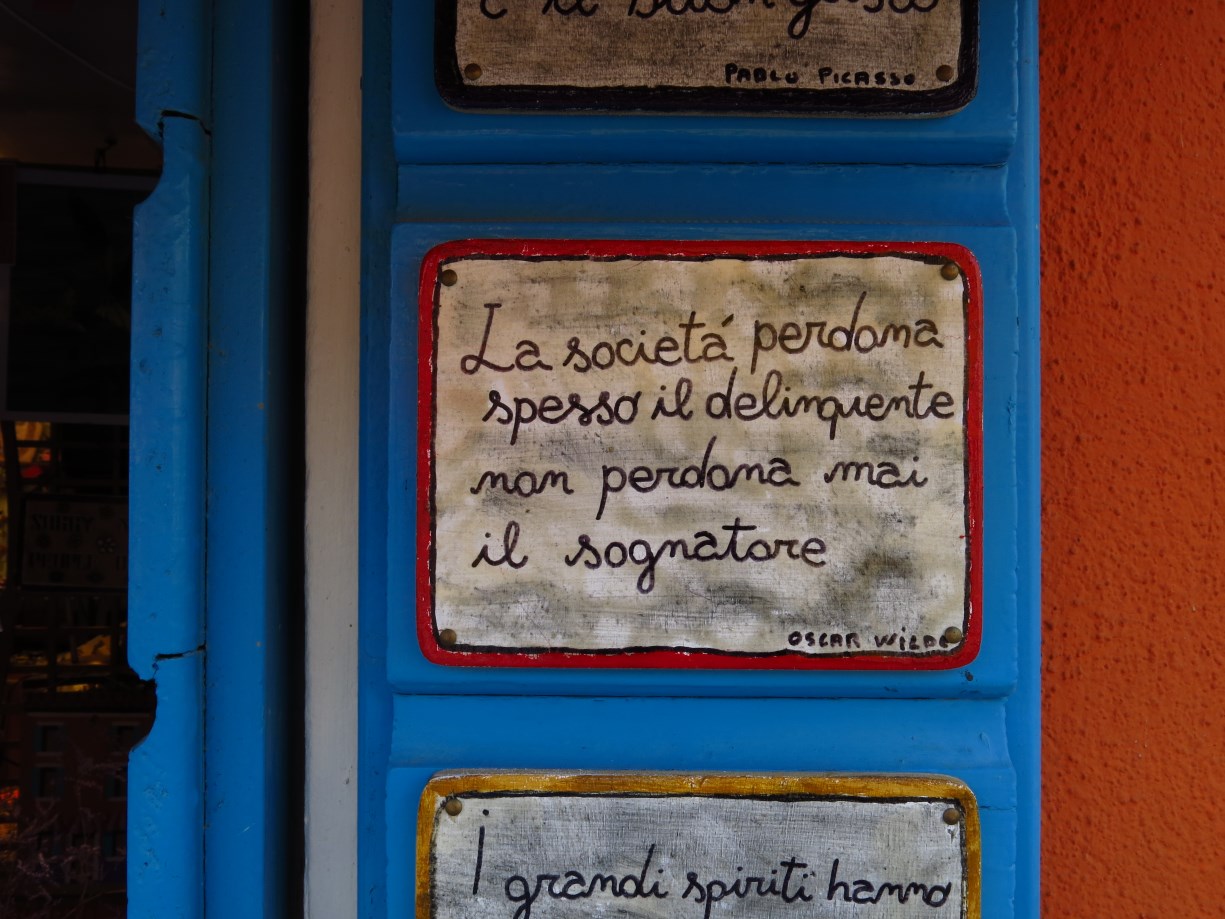 e il buon gusto
PABLO PICASSO
La societá perdona
spesso il delinquente
non perdona mai
il sognatore
OSCAR WILDE
I grandi spiriti hanno